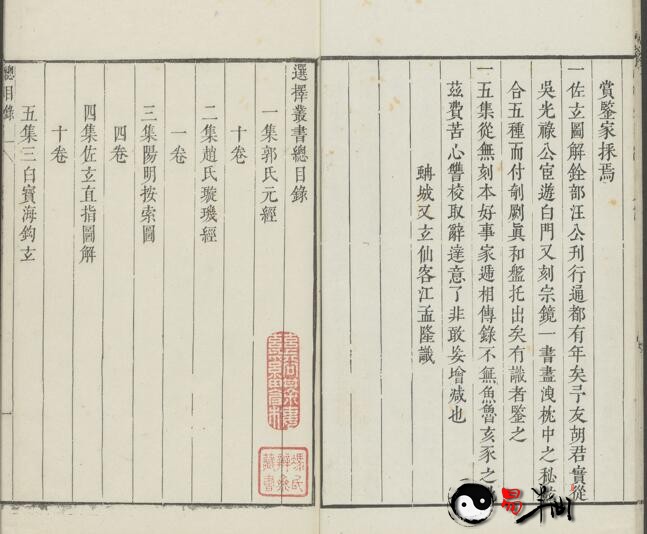 賞鑒家採焉
一佐玄圖解銓部汪公刊行通都有年矣予友胡君實從
吳光祿公宦遊白門又刻宗鏡一書盡洩枕中之秘
合五種而付剞劂眞和盤托出矣有識者鑒之
一五集從無刻本好事家遞相傳錄不無魚魯亥豕之
茲費苦心讐校取辭達意了非敢妄增減也
城又玄仙客江孟隆識
選擇叢書總目錄
一集郭氏元經
十卷
二集趙氏璇璣經
一卷
三集陽明按索圖
四卷
四集佐玄直指圖解
十卷
五集三白寶海鈎玄
總目錄
一
馮氏辨齋藏書
易